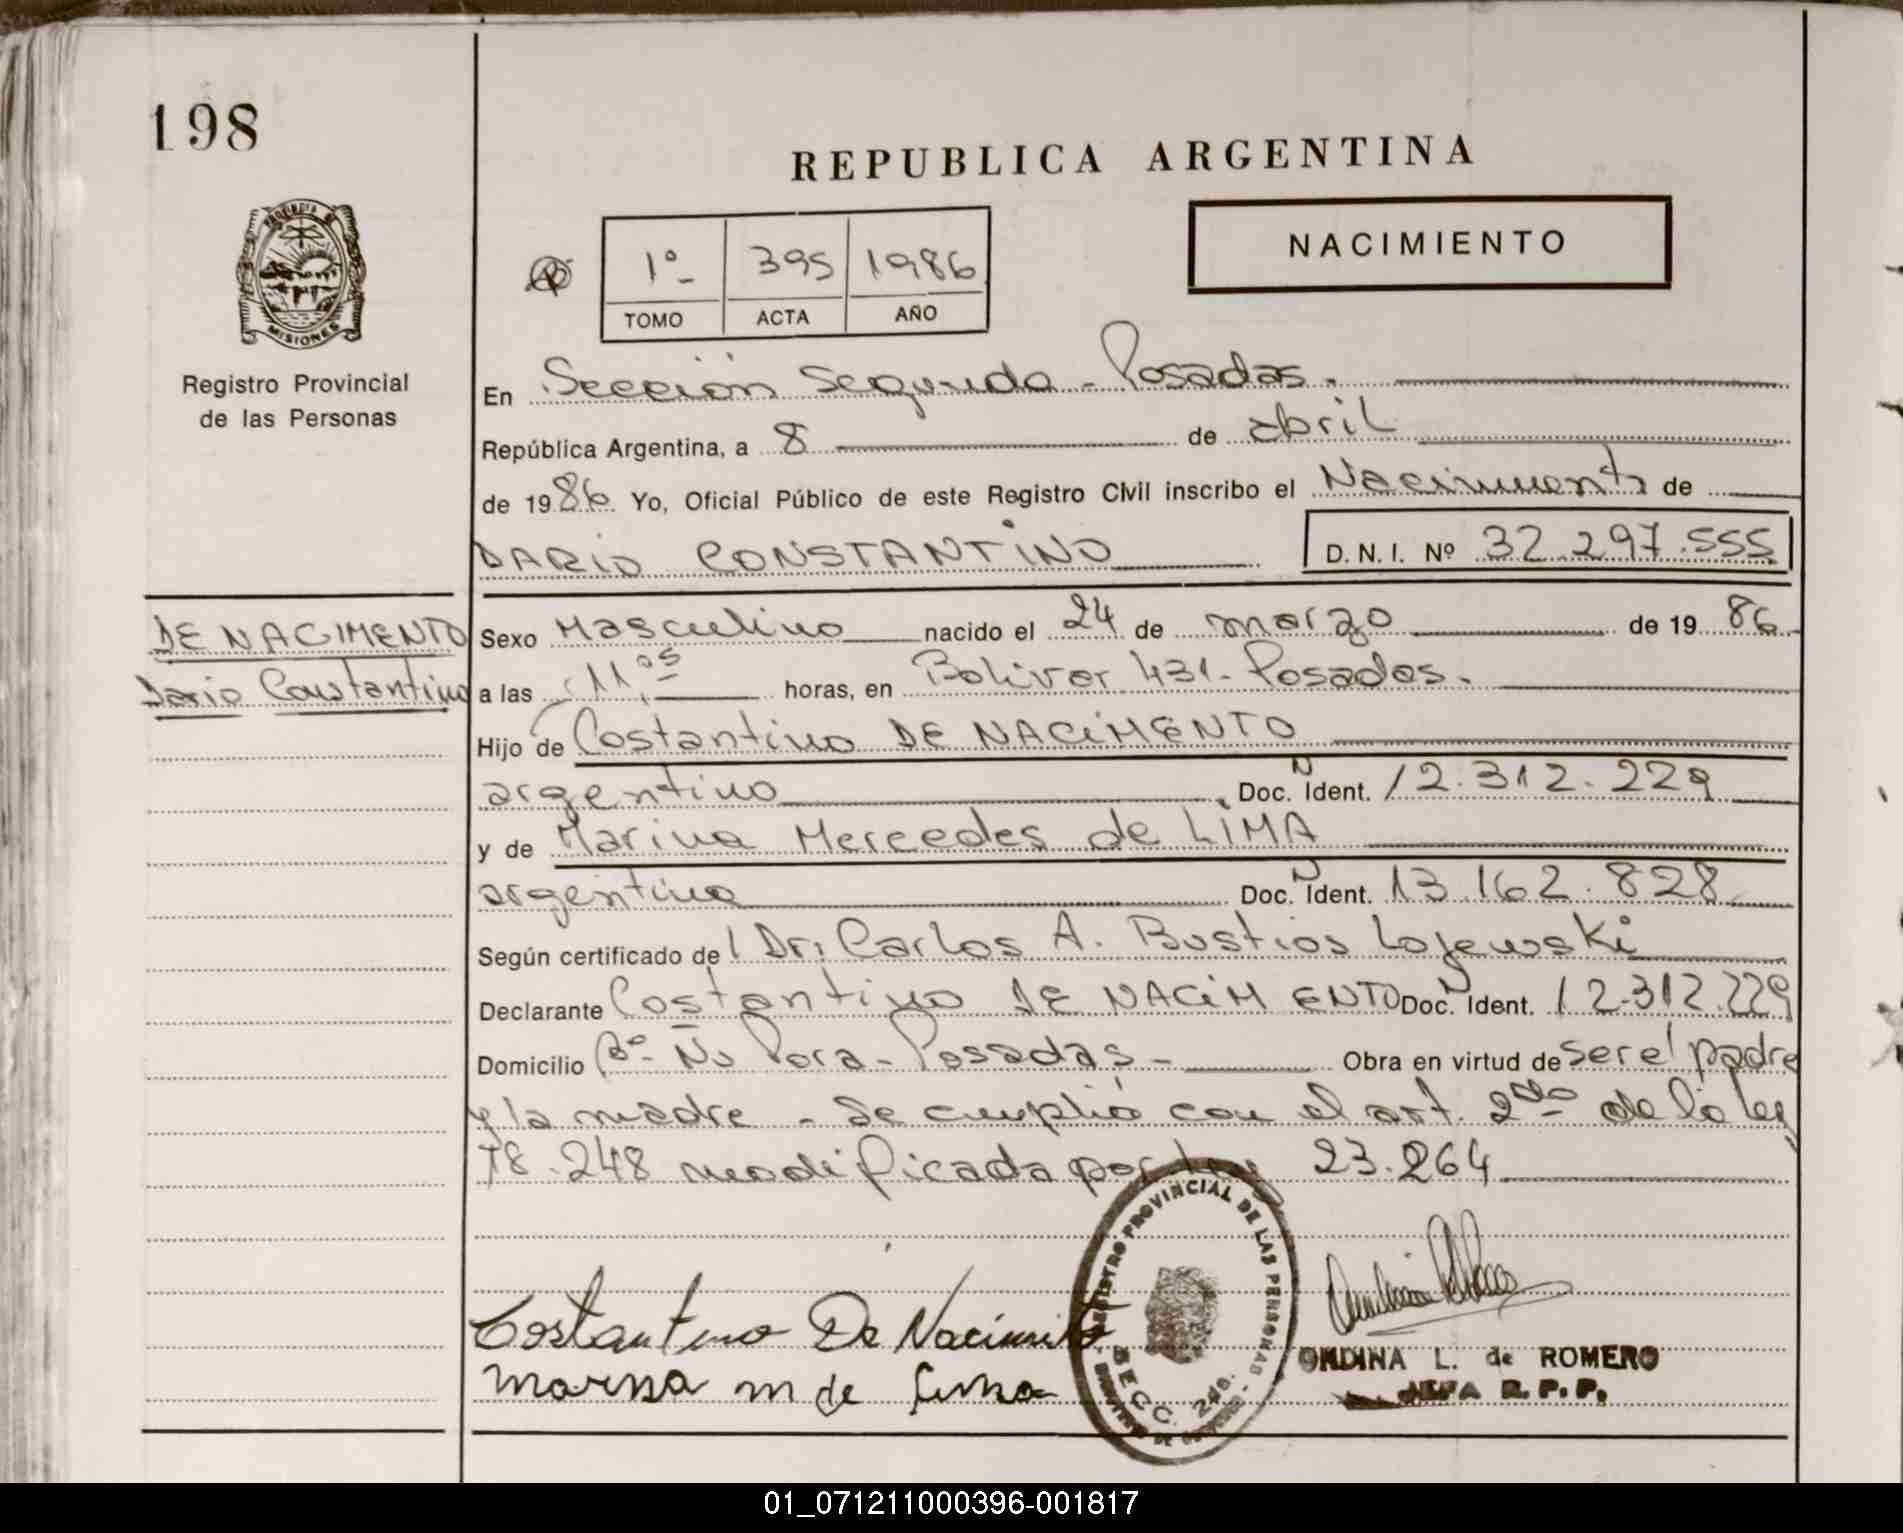 198
REPUBLICA ARGENTINA
PROVINCIA DE
MISIONES
Registro Provincial
de las Personas
1º 395 1986
TOMO ACTA AÑO
NACIMIENTO
En Sección Segunda - Posadas.
República Argentina, a 8 de abril
de 1986 Yo, Oficial Público de este Registro Civil inscribo el Nacimiento de
DARIO CONSTANTINO D.N.I. Nº 32.297.555
DE NACIMENTO
Dario Constantino
Sexo Masculino nacido el 24 de marzo de 1986
a las 11,05 horas, en Bolivar 431 - Posadas.
Hijo de Costantino DE NACIMENTO
argentino Doc. N Ident. 12.312.229
y de Marina Mercedes de LIMA
argentina Doc. N Ident. 13.162.828
Según certificado de Dr. Carlos A. Bustios Lojewski
Declarante Costantino DE NACIMENTO Doc. N Ident. 12.312.229
Domicilio Bº Ñu Pora - Posadas - Obra en virtud de ser el padre
y la madre - Se cumplió con el art. 2do de la ley
18.248 modificada por ley 23.264
REGISTRO PROVINCIAL DE LAS PERSONAS
SECC. 2da.
Costantino De Nacimento
Marina M de Lima
ONDINA L. de ROMERO
JEFA R.P.P.
01_071211000396-001817